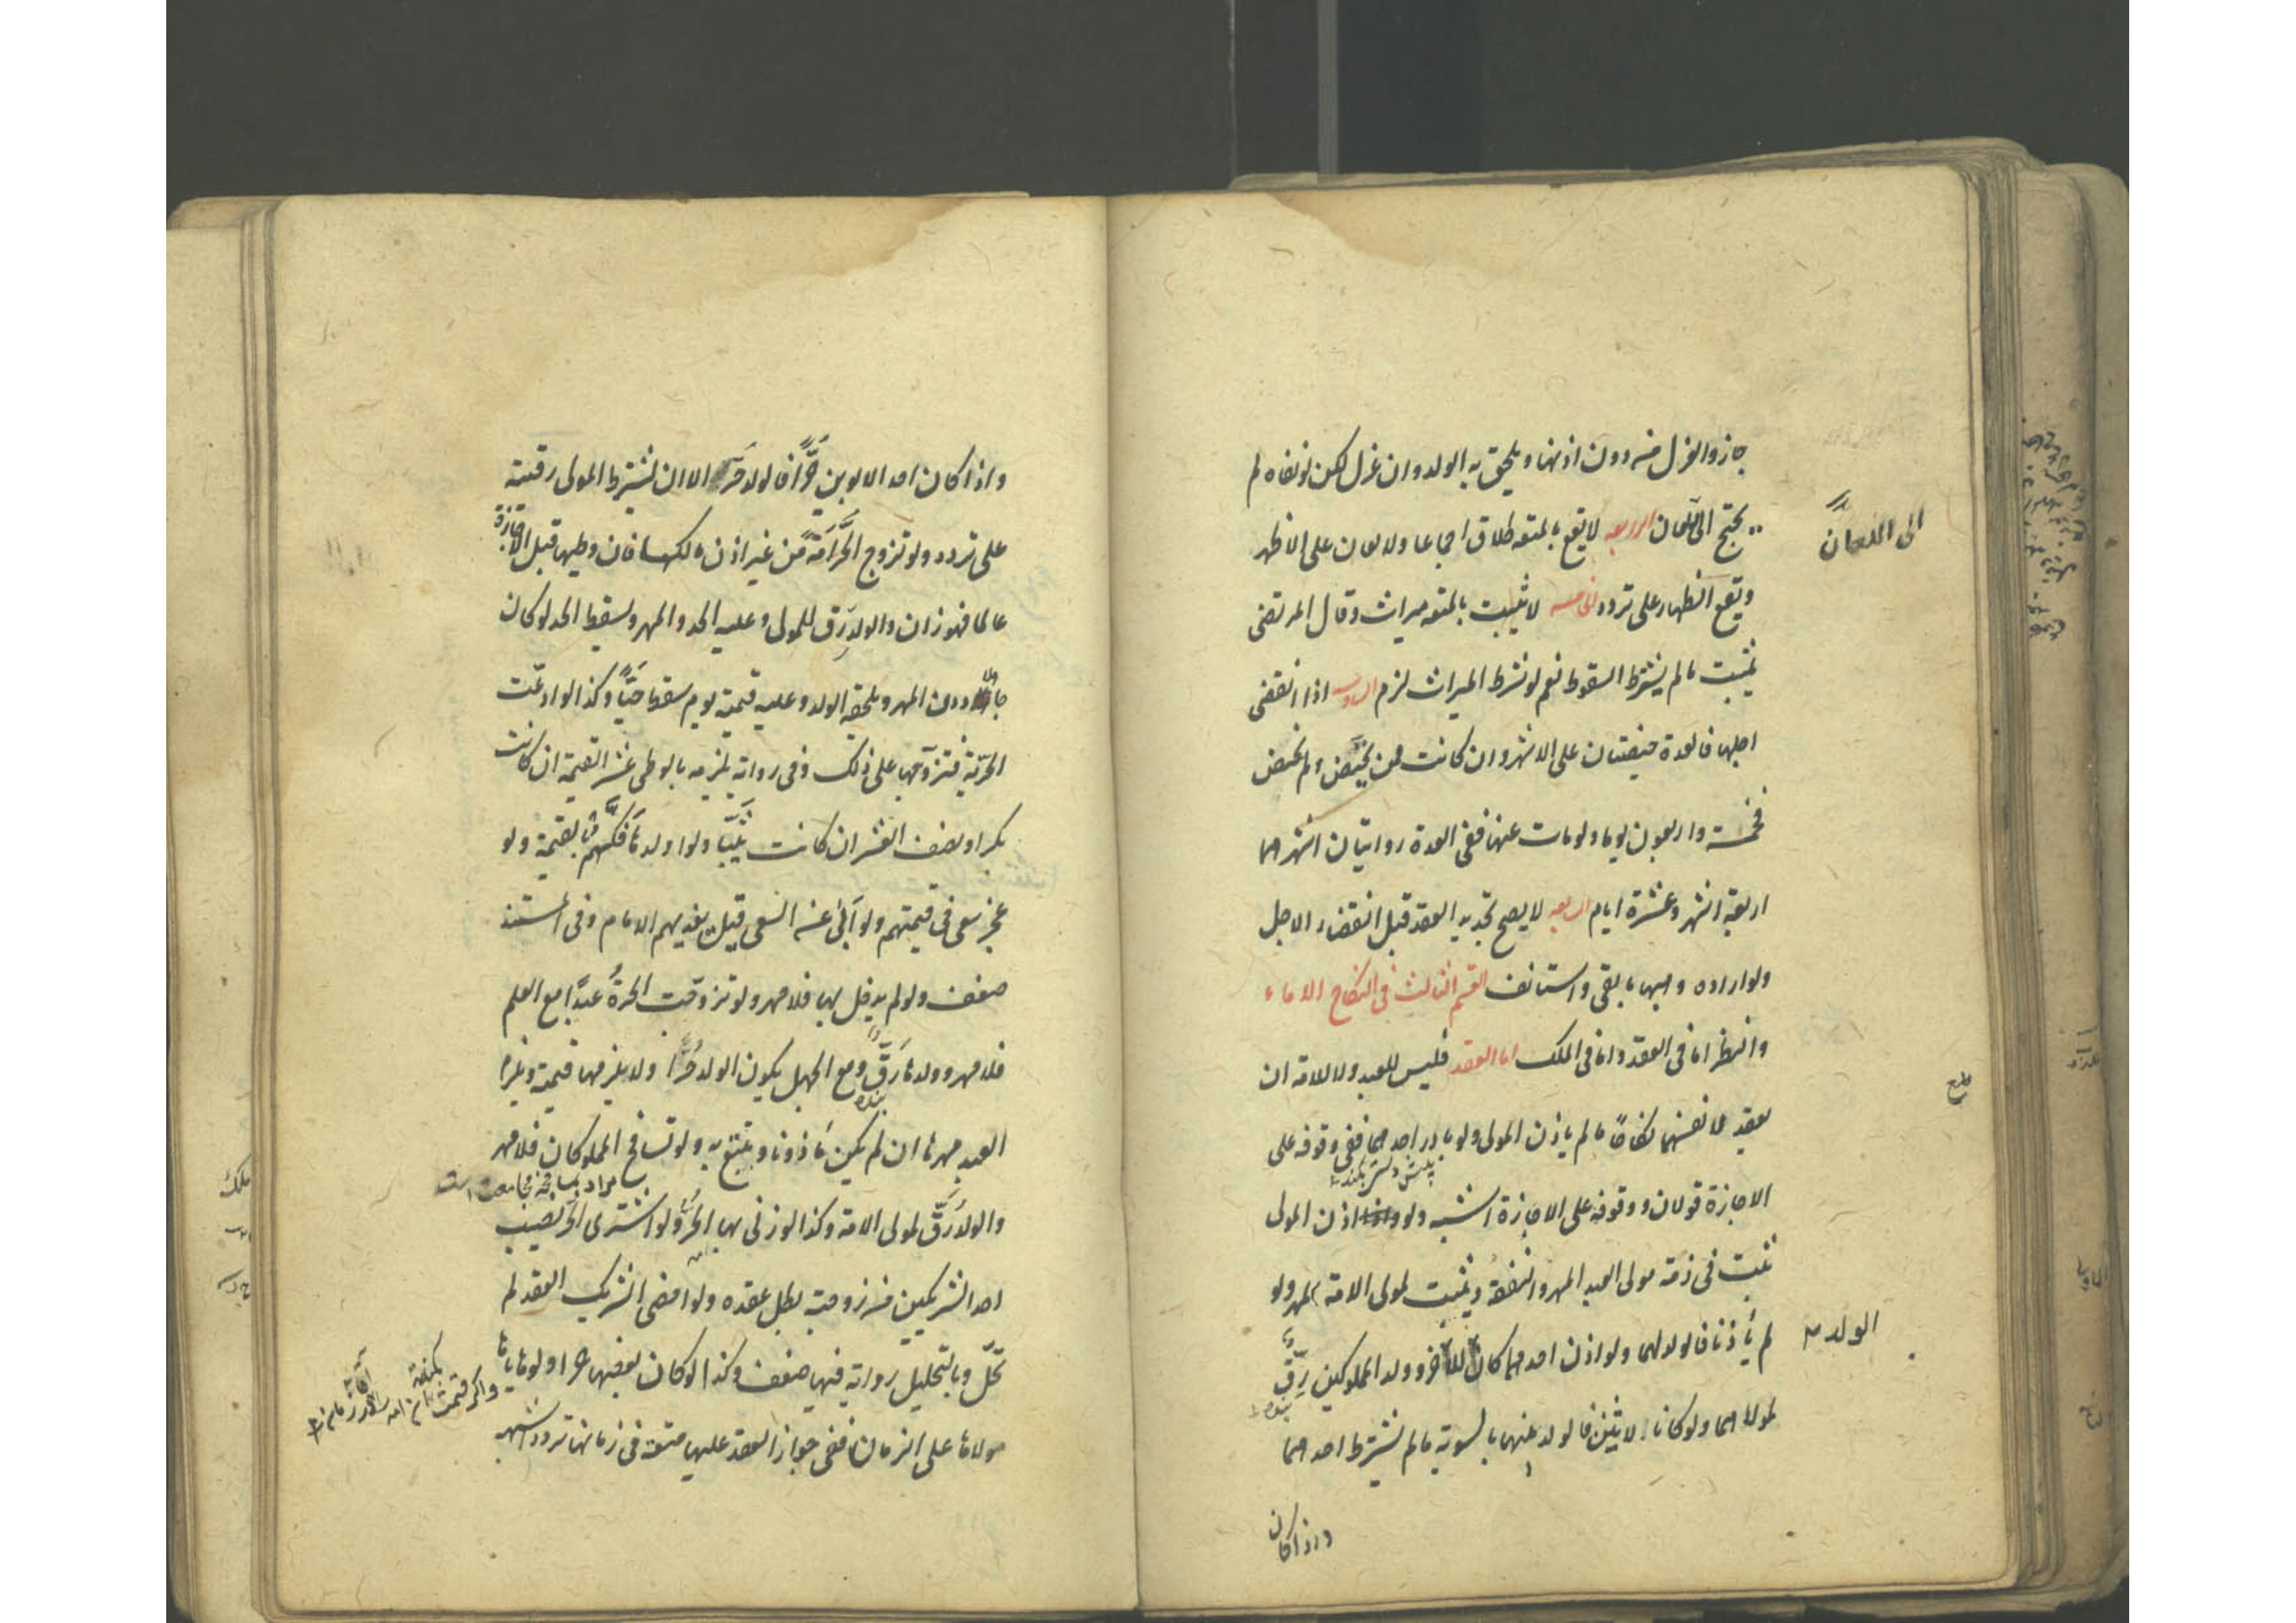 جاز والعزل منه دون اذنها ويلحق به الولد وان عزل لكن لو نفاه لم
يحتج الى اللعان الرابعه لا يقع بالمتعه طلاق اجماعا ولا لعان على الاظهر
الى اللعان
ويقع الظهار على تردد الخامسه لا يثبت بالمتعه ميراث وقال المرتضى
يثبت مالم يشترط السقوط نعم لو شرط الميراث لزم السادسه اذا انقضى
اجلها فالعدة حيضتان على الاشهر وان كانت ممن تحيض ولم تحض
فخمسة واربعون يوما ولو مات عنها ففى العدة روايتان اشهرهما
اربعة اشهر وعشرة ايام السابعه لا يصح تجديد العقد قبل انقضاء الاجل
ولو اراده وهبها ما بقى واستانف القسم الثالث فى النكاح الاماء
والنظر اما فى العقد واما فى الملك اما العقد فليس للعبد ولا للامة ان
يعقد لانفسهما نكاحًا مالم ياذن المولى ولو بادر احدهما ففى وقوفه على
الاجازة قولان ووقوفه على الاجازة اشبه ولو اذن المولى
ثبت فى ذمة مولى العبد المهر والنفقة ويثبت لمولى الامة المهر ولو
لم يأذنا فالولد لهما ولو اذن احدهما كان للآخر وولد المملوكين رقٌّ
الولد
لمولاهما ولو كانا لاثنين فالولد بينهما بالسوية مالم يشترط احدهما
واذا كان
واذا كان احد الابوين حرًّا فالولد حرّ الا ان يشترط المولى رقيته
على تردد ولو تزوج الحرّ امةً من غير اذن مالكها فان وطيها قبل الاجازة
عالما فهو زان والولد رق للمولى وعليه الحد والمهر ويسقط الحد لو كان
جاهلا دون المهر ويلحقه الولد وعليه قيمته يوم سقط حيًّا وكذا لو ادعت
الحرية فتزوجها على ذلك وفى رواية يلزمه بالوطى عشر القيمة ان كانت
بكرا ونصف العشر ان كانت ثيّبًا ولو اولدها فكّهم بالقيمة ولو
عجز سعى فى قيمتهم ولو ابى عن السعى قيل يفديهم الامام وفى المستند
ضعف ولو لم يدخل بها فلا مهر ولو تزوجت الحرةُ عبدًا مع العلم
فلا مهر وولدها رقٌّ ومع الجهل يكون الولد حرًّا ولا يلزمها قيمته ويلزم
العبد مهرها ان لم يكن مأذونا ويتبع به ولو تسافح المملوكان فلا مهر
مراد بمسافحة مجامعت است
والولد رقّ لمولى الامة وكذا لو زنى بها الحرّ ولو اشترى الحرّ نصيب
احد الشريكين من زوجته بطل عقده ولو امضى الشريك العقد لم
تحلّ وبالتحليل رواية فيها ضعف وكذا لو كان بعضها حرا ولو هاياها
مولاها على الزمان ففى جواز العقد عليها متعة فى زمانها تردد اشبهه